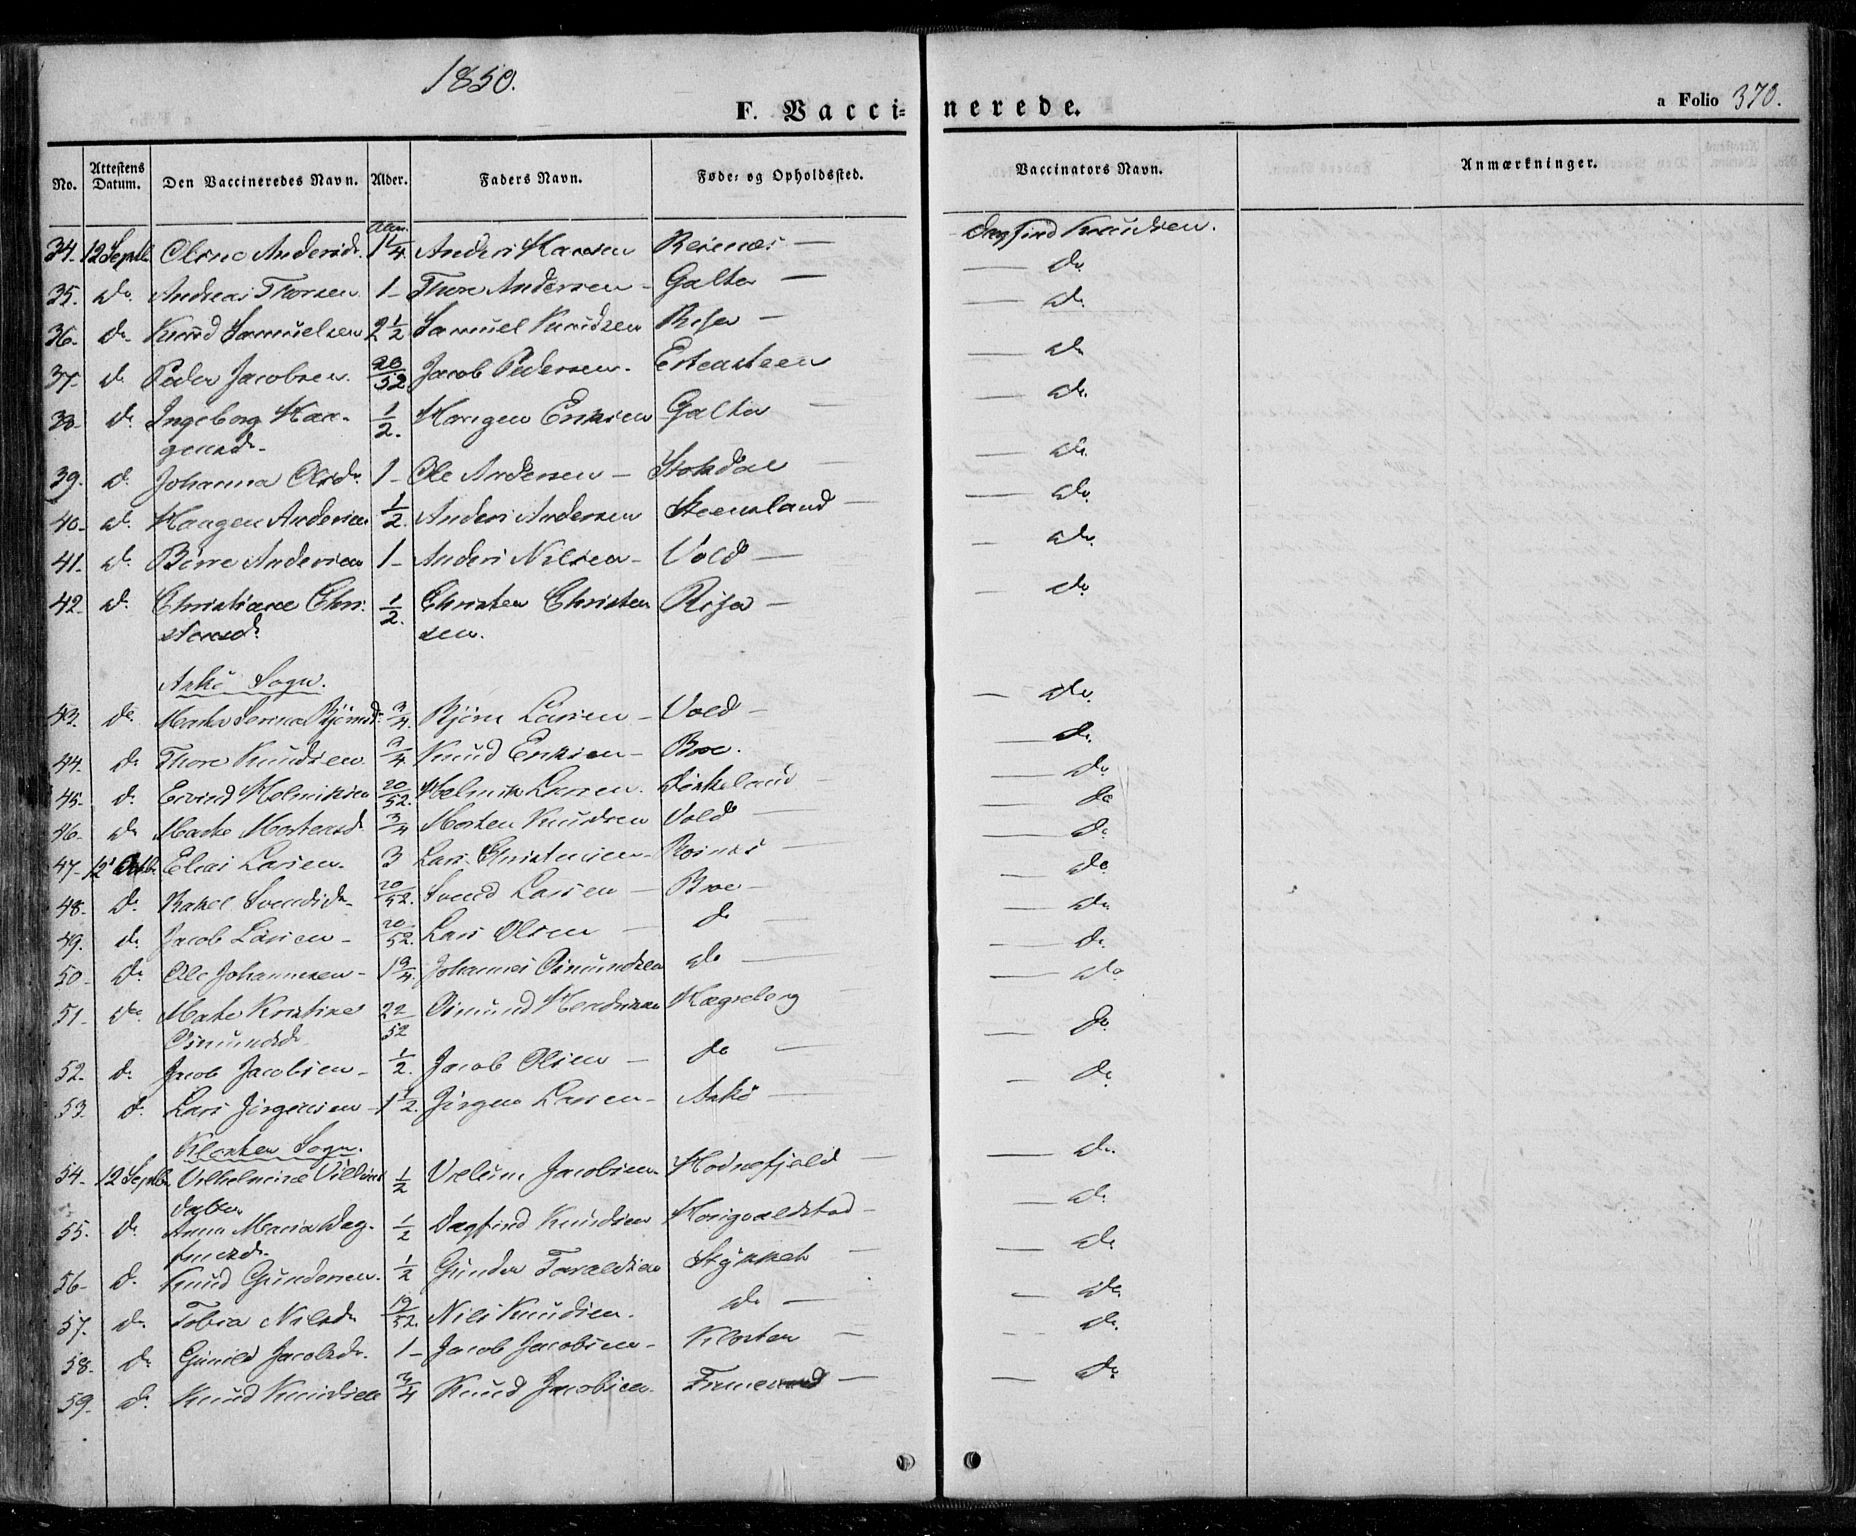 1850.
F. Vaccinerede.
a Folio 370.
No. Attestens Datum. Den Vaccineredes Navn. Alder. Faders Navn. Føde- og Opholdssted. Vaccinators Navn. Anmærkninger.
34. 12 Septb. Olene Andersd. 1 1/4 Anders Hansen — Dagfind Knudsen.
35. do. Andreas Thorsen 1 - Thore Andersen - Galta — do.
36. do. Knud Samuelsen 2 1/2 Samuel Knudsen Risa — do.
37. do. Peder Jacobsen. 20/52 Jacob Pedersen. Estensteen do.
38. do. Ingeborg Haa- 1/2. Haagen Eriksen Galta — do.
gensd.
39. do. Johanna Olsd. 1 - Ole Andersen - Stokdal — do.
40. do. Haagen Andersen 1/2. Anders Andersen Steensland — do.
41. do. Børre Andersen 1 - Anders Nilsen - Vold — do.
42. do. Christiane Chri- 1/2. Christen Christen Risa — do.
stensd. sen.
Askø Sogn.
43. do. Marta Serina Bjørnsd. 3/4. Bjørn Larsen - Vold — do.
44. do. Thore Knudsen 3/4 Knud Eriksen - Broe. — do.
45. do. Eivind Helmiksen 20/52. Helmik Larsen. — do.
46. do. Marta Mortensd. 3/4 Morten Knudsen Vold — do.
47. 12 Octb. Elias Larsen. 3 Lars Christensen - — do.
48. do. Rakel Svendsd. 20/52. Svend Larsen — Broe — do.
49. do. Jacob Larsen - 20/52. Lars Olsen — do — do.
50. do. Ole Johannesen - 1 3/4. Johannes Osmundsen do — do.
51. do. Marta Kristine 22/52 Osmund Hendriksen Hægreberg — do.
Osmundsd.
52. do. Jacob Jacobsen - 1/2. Jacob Olsen — do — do.
53. do. Lars Jørgensen - 1 1/2. Jørgen Larsen - Askø — do.
Kloster Sogn.
54. 12 Septb. Vilhelmine Villums 1/2 Vielum Jacobsen. Hodnefjeld — do.
datter
55. do. Anna Maria Dag- 1/2 Dagfind Knudsen Harigvaldstad — do.
findsd.
56. do. Knud Gundersen. 1/2 Gunder Taraldsen Stykket — do.
57. do. Tobia Nilsd. 19/52. Nils Knudsen. do — do.
58. do. Gunild Jacobsd. 1 - Jacob Jacobsen - Kloster — do.
59. do. Knud Knudsen 3/4 Knud Jacobsen. — do.